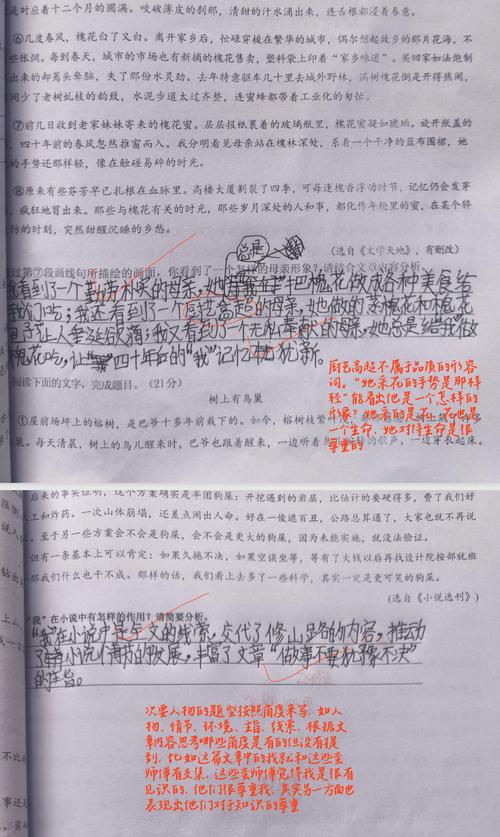 是对应着十二个月的圆满。咬破薄皮的刹那，清甜的汁水涌出来，连舌根都浸着春意。
⑥几度春风，槐花白了又白。离开家乡后，忙碌穿梭在繁华的城市，偶尔想起故乡的那片花海，不
些怅惘。每到春天，城市的市场也有新摘的槐花售卖，塑料袋上印着“家乡味道”。买回家如法炮制
出来的却蔫头耷脑，失了那份水灵劲。去年特意驱车几十里去城外野林，满树槐花倒是开得热闹，
间少了老树虬枝的韵致，水泥步道太过齐整，连蜜蜂都带着工业化的匆忙。
⑦前几日收到老家妹妹寄来的槐花蜜。层层报纸裹着的玻璃瓶里，槐花蜜凝如琥珀。旋开瓶盖的
，四十年前的春风忽然推窗而入。我分明看见母亲站在槐林深处，系着一个干净的蓝布围裙，她
的手势还那样轻，像在触碰易碎的时光。
⑧原来有些芬芳早已扎根在血脉里。高楼大厦割裂了四季，可每逢槐香浮动时节，记忆仍会发芽
，疯狂地冒出来。那些与槐花有关的时光，那些岁月深处的人和事，都化作年轮里的蜜，在某个猝
防的时刻，突然甜醒沉睡的乡愁。
（选自《文学天地》，有删改）
过第⑦段画线句所描绘的画面，你看到了一个怎样的母亲形象？请结合文章内容分析。
总是
我看到了一个勤劳朴实的母亲，她把槐花做成各种美食给
我们吃；我还看到了一个厨艺高超的母亲，她做的蒸槐花和槐花
包子让人垂涎欲滴；我又看到了一个无私奉献的母亲，她总是给“我”做
槐花吃，让四十年后的“我”记忆犹新。
阅读下面的文字，完成题目。（21分）
树上有鸟巢
①屋前场坪上的榕树，是巴爷十多年前栽下的。如今，榕树枝繁
。每天清晨，树上的鸟儿醒来时，巴爷也跟着醒来，一边听着的歌声，一边穿衣起床。
厨艺高超不属于品质的形容
词。“她采花的手势是那样
轻”能看出他是一个怎样的
形象？她采的是花，花也是
一个生命，她对待生命是很
尊重的
后来的事实证明，这个方案确实是牢团狗屎：开挖遇到的岩层，比估计的要硬得多，费了我们好
人工和炸药。一次山体崩塌，还差点闹出人命。好在一傻遮百丑，公路总算通了，大家也就不再说
。至于另一些方案会不会是狗屎，会不会是更大的狗屎，因为未能实施，就没法验证。
但有一条基本上可以肯定：如果久拖不决，如果空谈坐等，等有了大钱以后再找设计院按部就班
那我们什么也干不成。那样的话，我们看上去多了一些科学，其实一定是更可笑的狗屎。
（选自《小说选刊》）
“我”在小说中有怎样的作用？请简要分析。
“我”在小说中是全文的线索，交代了修山路的内容，推动
了小说情节的发展，丰富了文章“做事不要犹豫不决”
的主旨。
次要人物的题型按照角度来写，如人
物、情节、环境、主旨、线索，根据文
章内容思考哪些角度是有的但没有提
到，比如这篇文章中的我就和这些查
师傅有交集，这些查师傅觉得我是很有
见识的，他们很尊重我，其实另一方面也
表现出他们对待知识的尊重